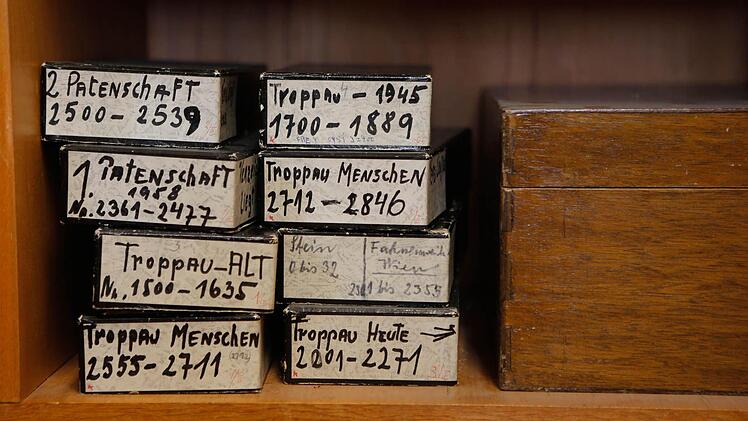 2 PATENSCHAFT
2500 - 2539
1. PATENSCHAFT
1958
Nr. 2361 - 2477
TROPPAU - ALT
Nr. 1500 - 1635
TROPPAU MENSCHEN
2555 - 2711
TROPPAU - 1945
1700 - 1889
TROPPAU MENSCHEN
2712 - 2846
Stein
0 bis 32
Wien
bis 2355
TROPPAU HEUTE →
2001 - 2271